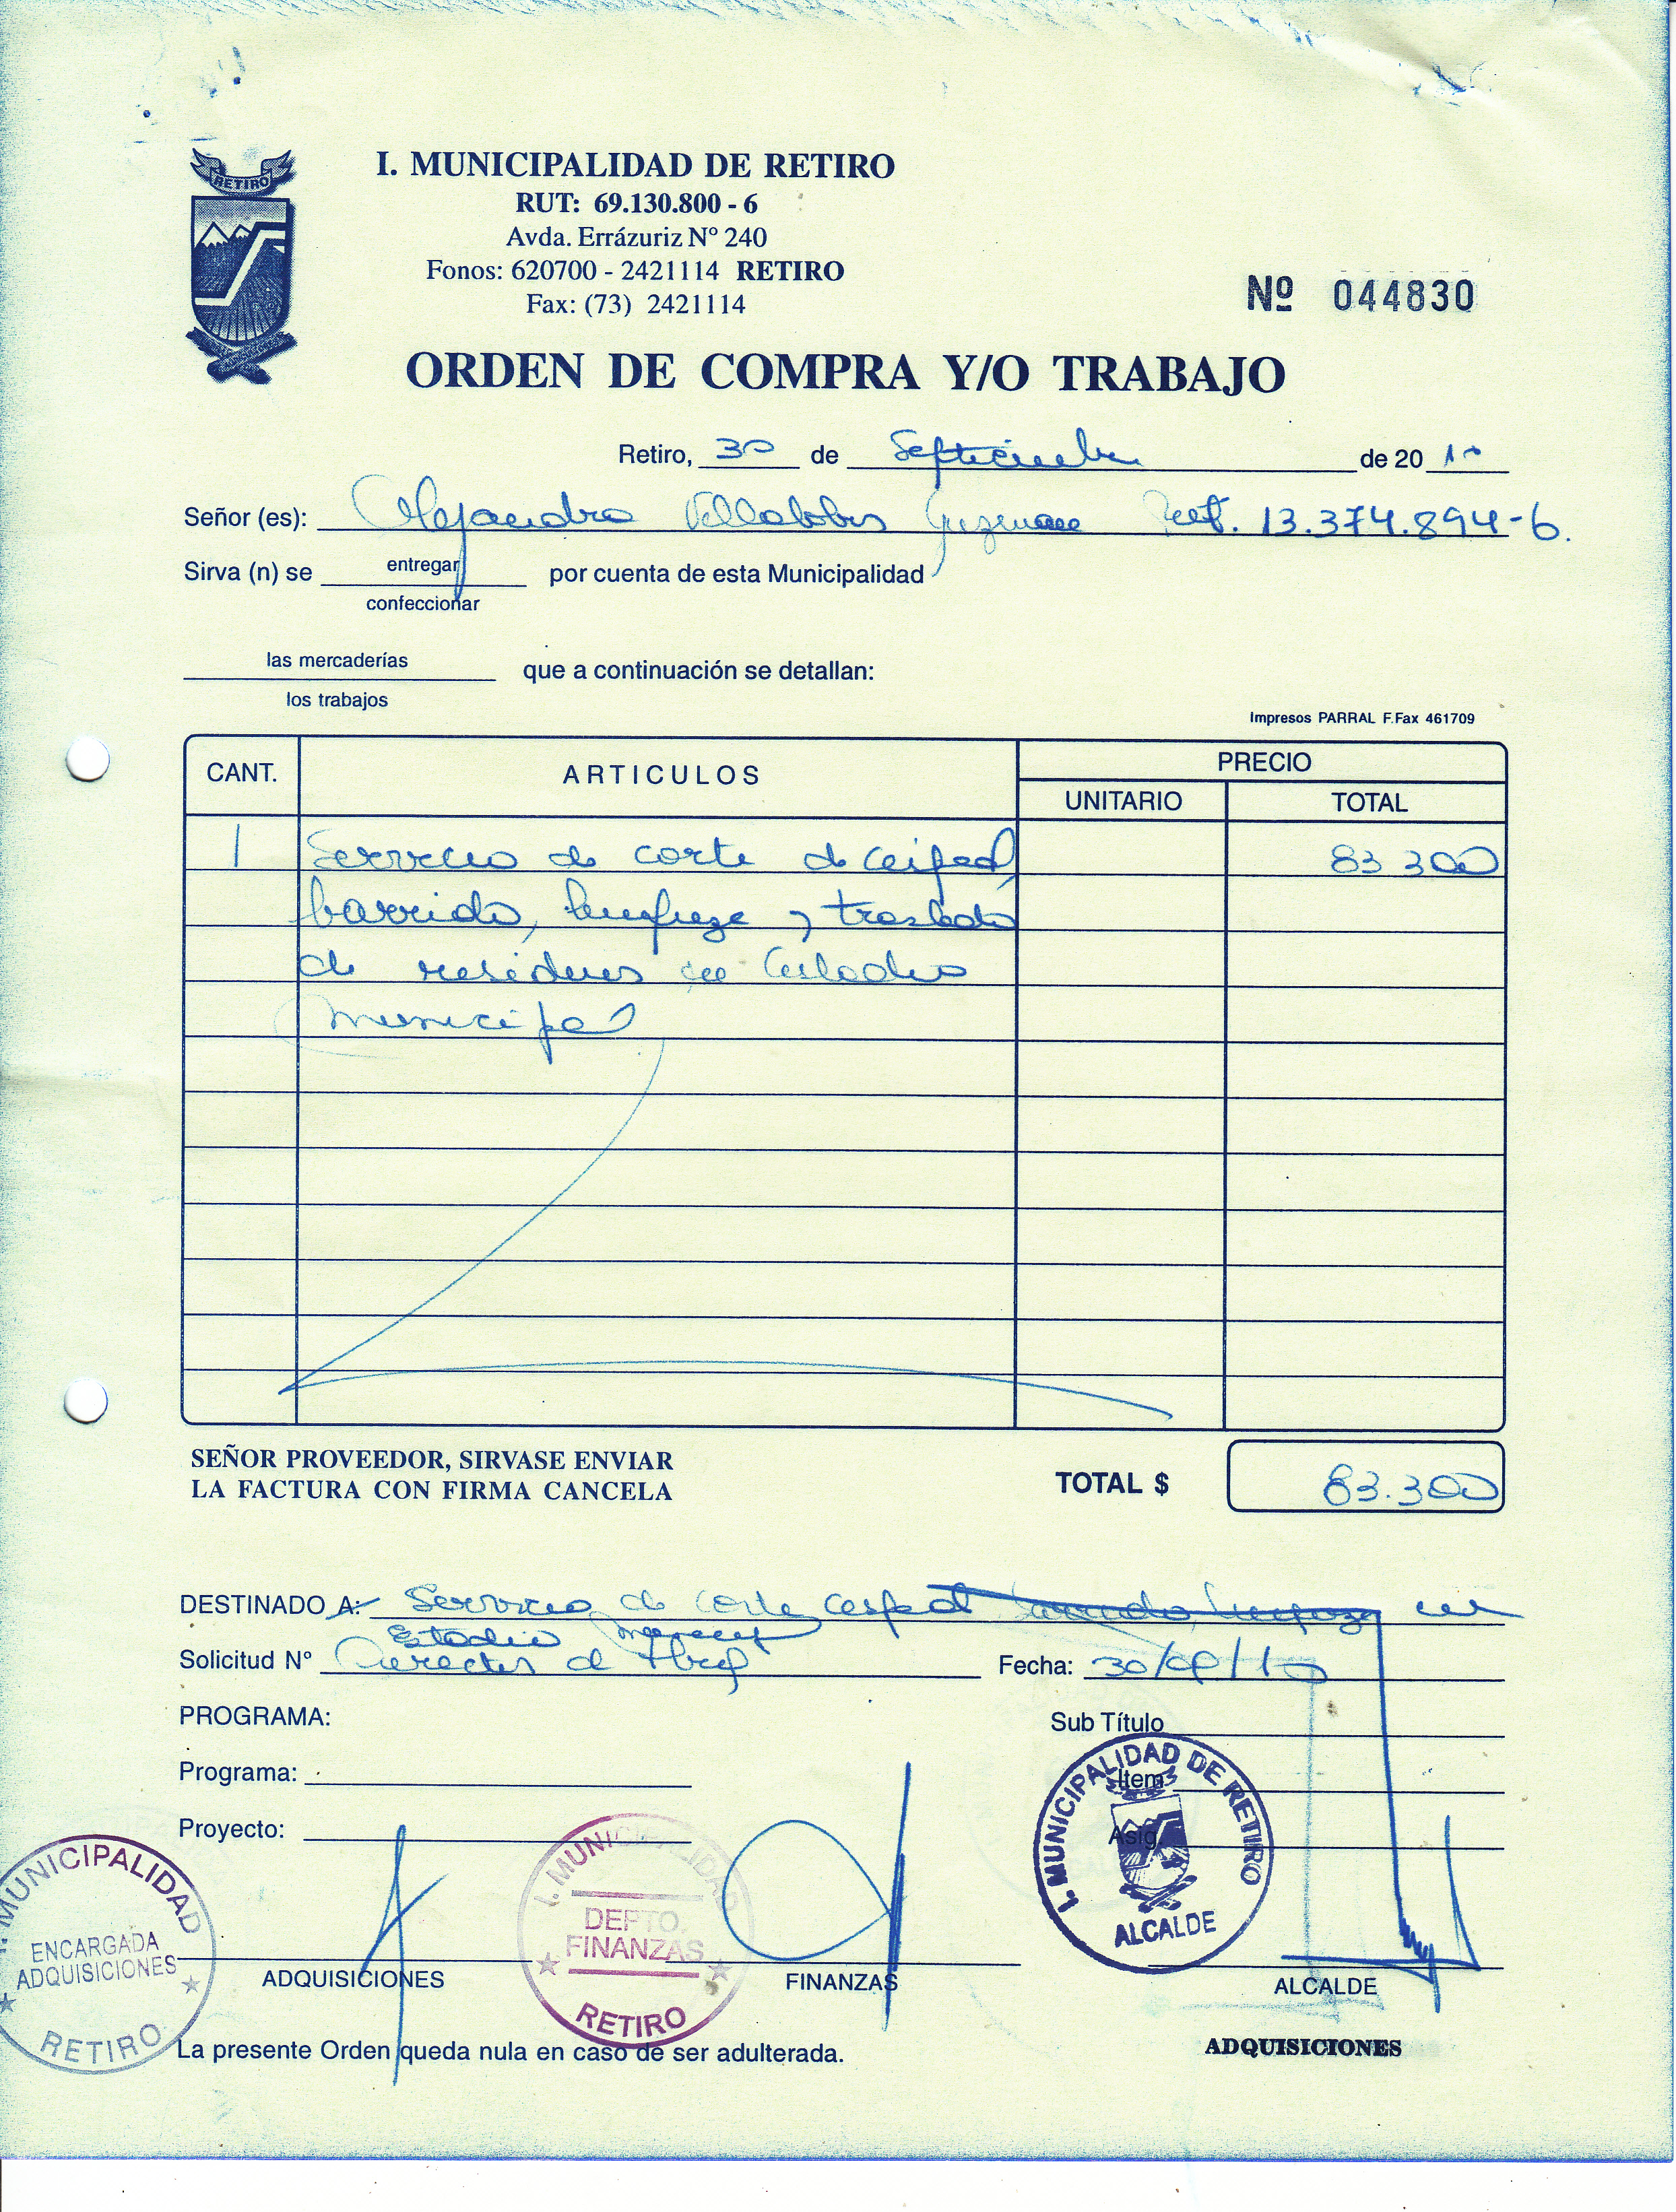 RETIRO
I. MUNICIPALIDAD DE RETIRO
RUT: 69.130.800 - 6
Avda. Errázuriz Nº 240
Fonos: 620700 - 2421114 RETIRO
Fax: (73) 2421114
Nº 044830
ORDEN DE COMPRA Y/O TRABAJO
Retiro, 30 de Septiembre de 20 10
Señor (es): Alejandro Villalobos Guzman Rut. 13.374.894-6.
Sirva (n) se entregar por cuenta de esta Municipalidad
confeccionar
las mercaderías que a continuación se detallan:
los trabajos
Impresos PARRAL F.Fax 461709
CANT. ARTICULOS PRECIO
UNITARIO TOTAL
1 Servicio de corte de cesped, 83.300
barrido, limpieza y traslado
de residuos en Estadio
Municipal
SEÑOR PROVEEDOR, SIRVASE ENVIAR
LA FACTURA CON FIRMA CANCELA
TOTAL $ 83.300
DESTINADO A: Servicio de corte cesped barrido, limpieza en
Estadio
Solicitud Nº Fecha: 30/09/10
PROGRAMA: Sub Título
Programa: Item
Proyecto: Asig.
I. MUNICIPALIDAD DE RETIRO
ALCALDE
MUNICIPALIDAD
ENCARGADA
ADQUISICIONES
RETIRO
I. MUNICIPALIDAD
DEPTO.
FINANZAS
RETIRO
ADQUISICIONES FINANZAS ALCALDE
La presente Orden queda nula en caso de ser adulterada.
ADQUISICIONES